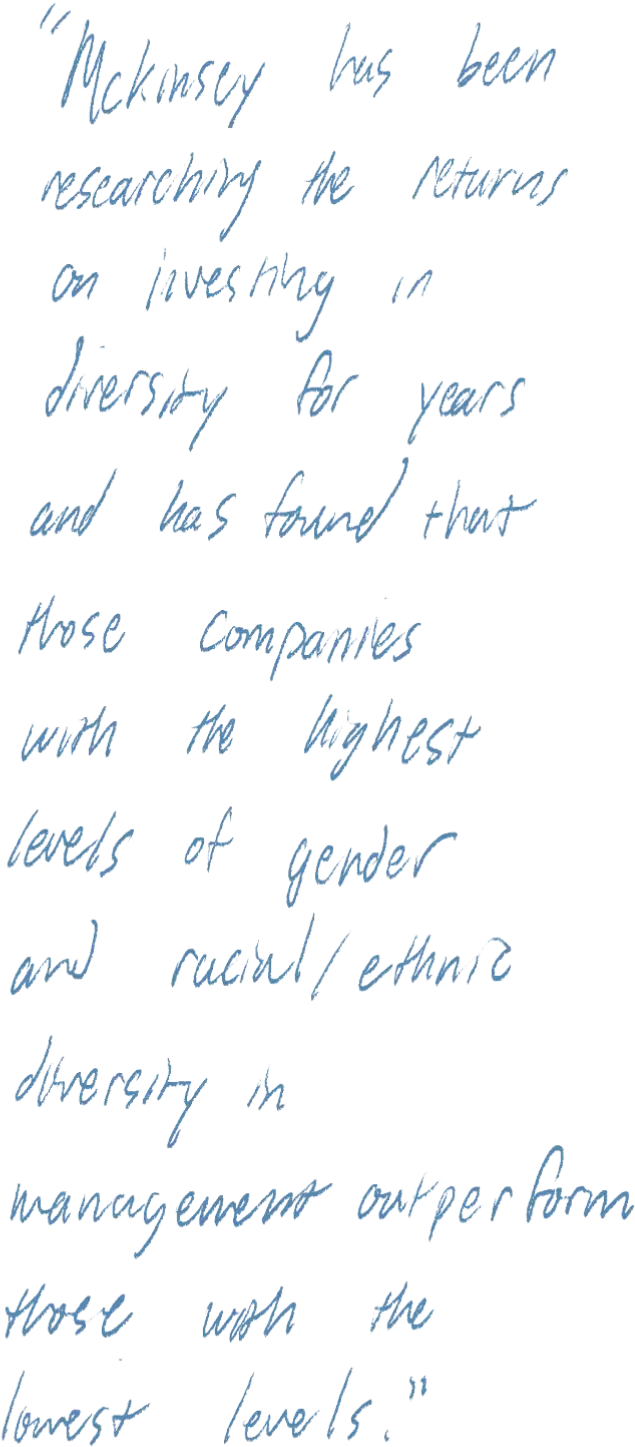 "Mckinsey has been
researching the returns
on investing in
diversity for years
and has found that
those companies
with the highest
levels of gender
and racial/ethnic
diversity in
management outperform
those with the
lowest levels."